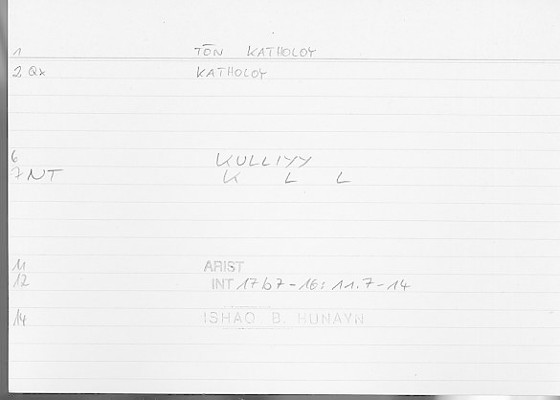 1 TŌN KATHOLOY
2 Qx KATHOLOY
6 KULLIYY
7 NT K L L
11 ARIST
12 INT 17b7-16: 11.7-14
14 ISHAQ B. HUNAYN